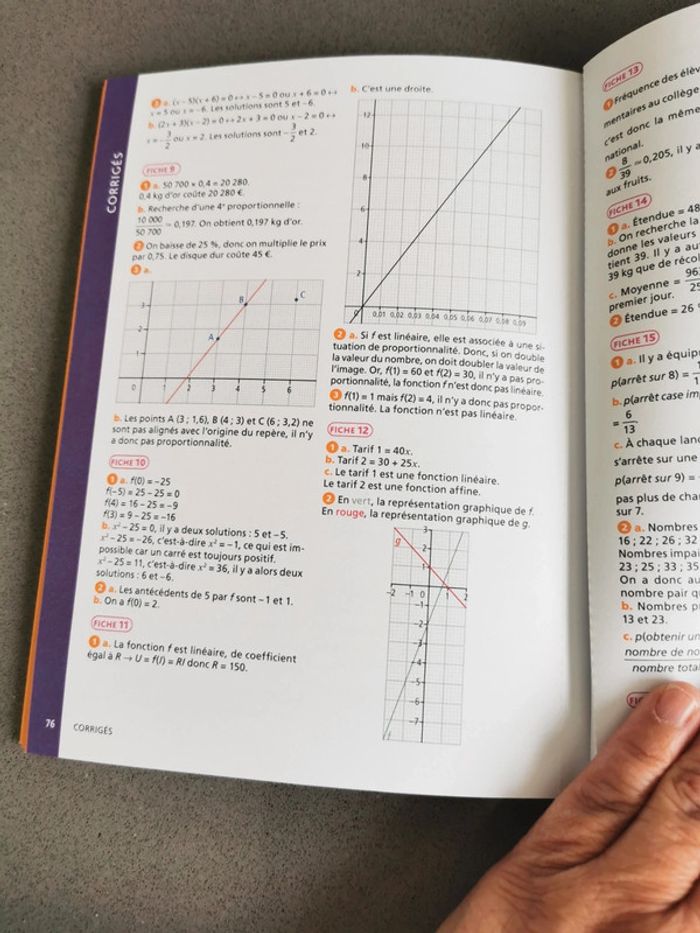 CORRIGÉS
3 a. (x – 5)(x + 6) = 0 ↔ x – 5 = 0 ou x + 6 = 0 ↔
x = 5 ou x = –6. Les solutions sont 5 et –6.
b. (2x + 3)(x – 2) = 0 ↔ 2x + 3 = 0 ou x – 2 = 0 ↔
x = –3/2 ou x = 2. Les solutions sont –3/2 et 2.
FICHE 9
1 a. 50 700 × 0,4 = 20 280.
0,4 kg d'or coûte 20 280 €.
b. Recherche d'une 4e proportionnelle :
10 000/50 700 ≈ 0,197. On obtient 0,197 kg d'or.
2 On baisse de 25 %, donc on multiplie le prix
par 0,75. Le disque dur coûte 45 €.
3 a.
3
2
1
A
B
C
0 1 2 3 4 5 6
b. Les points A (3 ; 1,6), B (4 ; 3) et C (6 ; 3,2) ne
sont pas alignés avec l'origine du repère, il n'y
a donc pas proportionnalité.
FICHE 10
1 a. f(0) = –25
f(–5) = 25 – 25 = 0
f(4) = 16 – 25 = –9
f(3) = 9 – 25 = –16
b. x² – 25 = 0, il y a deux solutions : 5 et –5.
x² – 25 = –26, c'est-à-dire x² = –1, ce qui est im-
possible car un carré est toujours positif.
x² – 25 = 11, c'est-à-dire x² = 36, il y a alors deux
solutions : 6 et –6.
2 a. Les antécédents de 5 par f sont –1 et 1.
b. On a f(0) = 2.
FICHE 11
1 a. La fonction f est linéaire, de coefficient
égal à R → U = f(I) = RI donc R = 150.
76 CORRIGÉS
b. C'est une droite.
12
10
8
6
4
2
0 0,01 0,02 0,03 0,04 0,05 0,06 0,07 0,08 0,09
2 a. Si f est linéaire, elle est associée à une si-
tuation de proportionnalité. Donc, si on double
la valeur du nombre, on doit doubler la valeur de
l'image. Or, f(1) = 60 et f(2) = 30, il n'y a pas pro-
portionnalité, la fonction f n'est donc pas linéaire.
3 f(1) = 1 mais f(2) = 4, il n'y a donc pas propor-
tionnalité. La fonction n'est pas linéaire.
FICHE 12
1 a. Tarif 1 = 40x.
b. Tarif 2 = 30 + 25x.
c. Le tarif 1 est une fonction linéaire.
Le tarif 2 est une fonction affine.
2 En vert, la représentation graphique de f.
En rouge, la représentation graphique de g.
g
3
2
1
-2 -1 0 1 2
-1
-2
-3
-4
-5
-6
-7
f
FICHE 13
1 Fréquence des élèv
mentaires au collège
c'est donc la même
national.
2 8/39 ≈ 0,205, il y a
aux fruits.
FICHE 14
1 a. Étendue = 48
b. On recherche la
donne les valeurs
tient 39. Il y a au
39 kg que de récol
c. Moyenne = 96
premier jour.
2 Étendue = 26
FICHE 15
1 a. Il y a équip
p(arrêt sur 8) =
b. p(arrêt case im
= 6/13.
c. À chaque lanc
s'arrête sur une
p(arrêt sur 9) =
pas plus de cha
sur 7.
2 a. Nombres
16 ; 22 ; 26 ; 32
Nombres impai
23 ; 25 ; 33 ; 35
On a donc au
nombre pair q
b. Nombres p
13 et 23.
c. p(obtenir un
nombre de no
nombre total